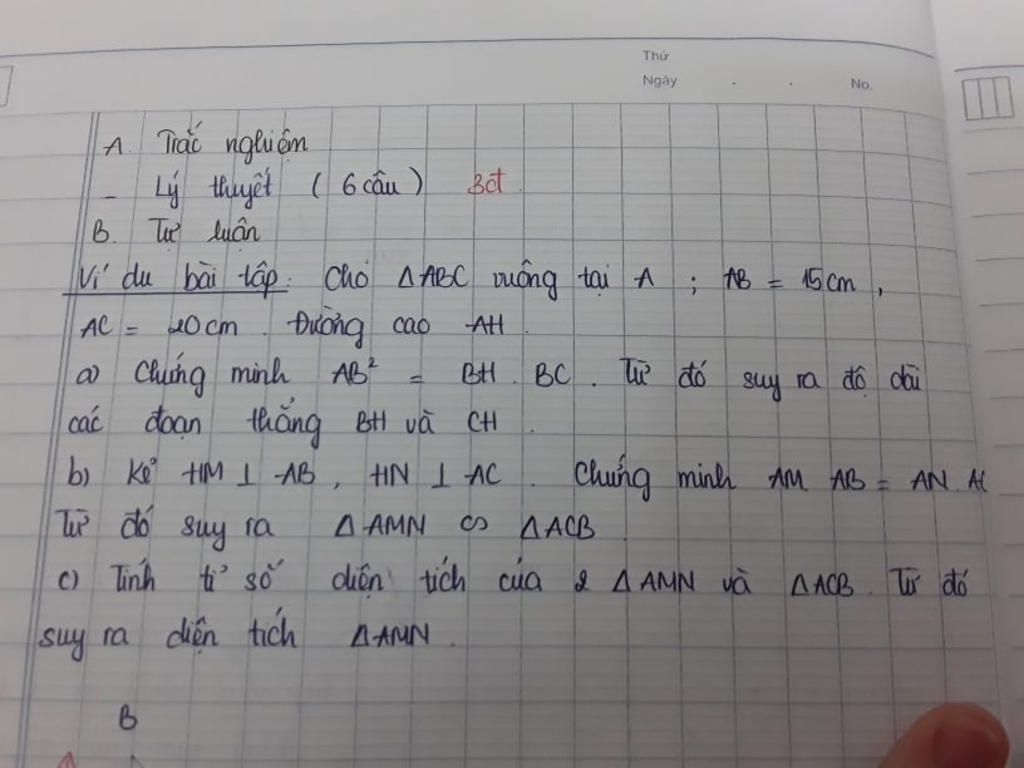 Thứ
Ngày . . No.
A. Trắc nghiệm
- Lý thuyết ( 6 câu ) 3đ
B. Tự luận
Ví dụ bài tập: Cho ΔABC vuông tại A ; AB = 15cm,
AC = 20cm. Đường cao AH.
a) Chứng minh AB² = BH . BC . Từ đó suy ra độ dài
các đoạn thẳng BH và CH .
b) Kẻ HM ⊥ AB , HN ⊥ AC . Chứng minh AM. AB = AN. AC
Từ đó suy ra Δ AMN ∽ Δ ACB
c) Tính tỉ số diện tích của 2 Δ AMN và Δ ACB. Từ đó
suy ra diện tích ΔAMN.
B